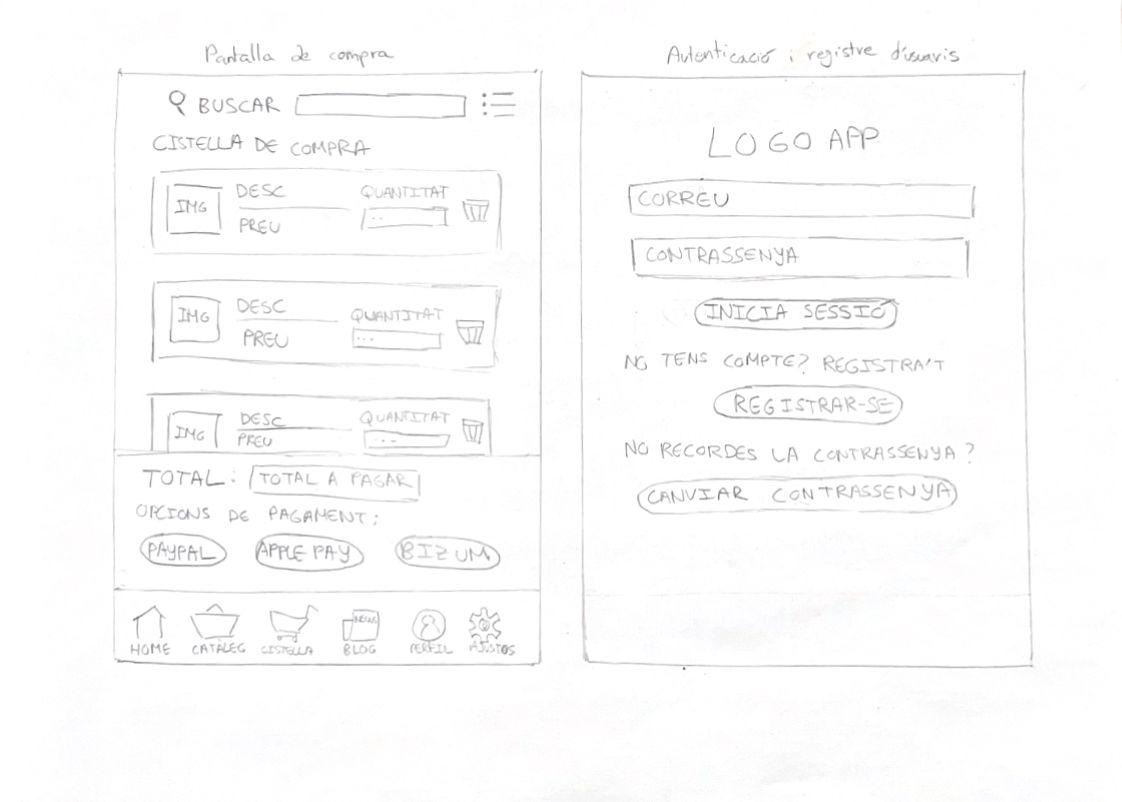 Pantalla de compra
BUSCAR
CISTELLA DE COMPRA
IMG DESC QUANTITAT
PREU ..
IMG DESC QUANTITAT
PREU ...
IMG DESC QUANTITAT
PREU ...
TOTAL: TOTAL A PAGAR
OPCIONS DE PAGAMENT:
PAYPAL APPLE PAY BIZUM
NEWS
HOME CATÀLEG CISTELLA BLOG PERFIL AJUSTOS
Autenticació i registre d'usuaris
LOGO APP
CORREU
CONTRASSENYA
INICIA SESSIÓ
NO TENS COMPTE? REGISTRA'T
REGISTRAR-SE
NO RECORDES LA CONTRASSENYA?
CANVIAR CONTRASSENYA